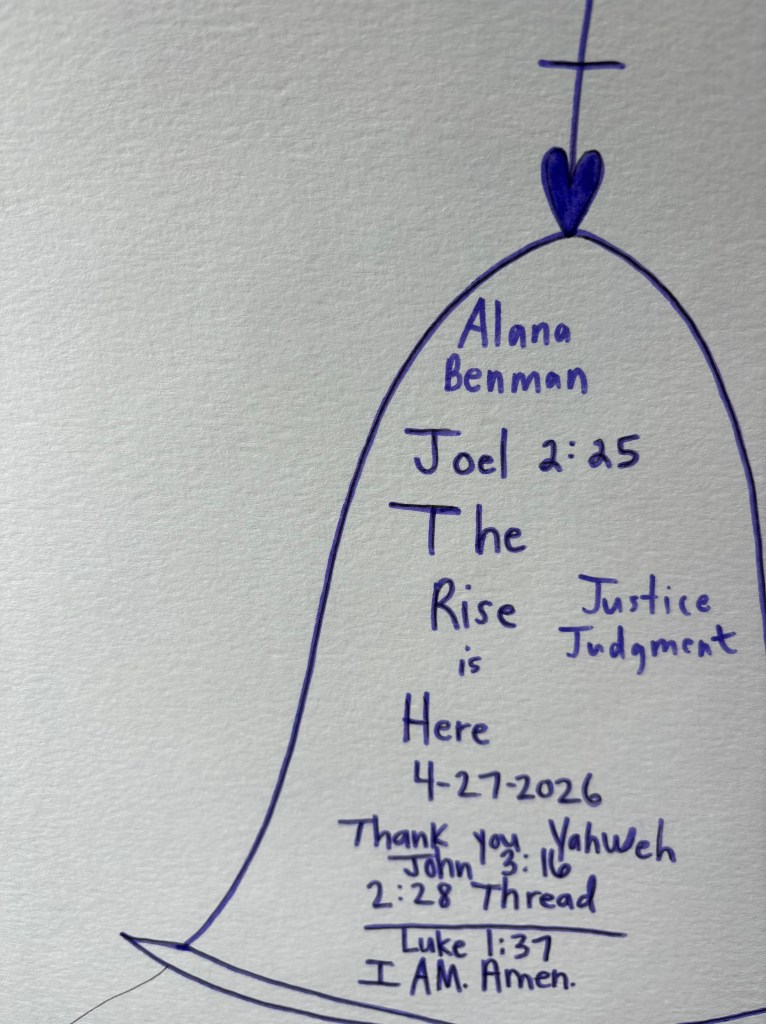 Alana
Benman
Joel 2:25
The
Rise
is
Justice
Judgment
Here
4-27-2026
Thank you Yahweh
John 3:16
2:28 Thread
Luke 1:37
I AM. Amen.